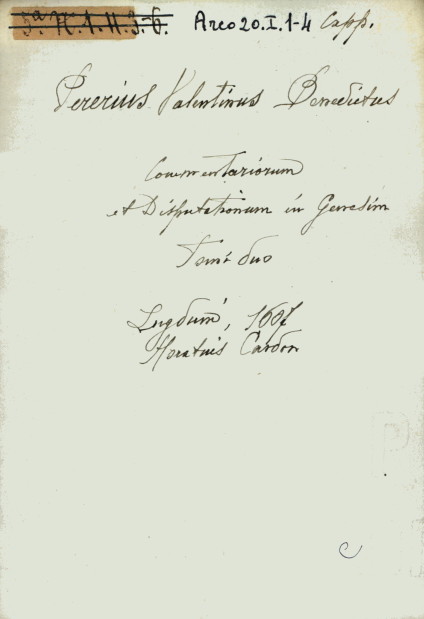 5ª N.1.H.3-6. Arco 20.I.1-4 Capp.
Pererius Valentinus Benedictus
Commentariorum
et Disputationum in Genesim
Tomi duo
Lugduni, 1607
Horatius Cardon
C